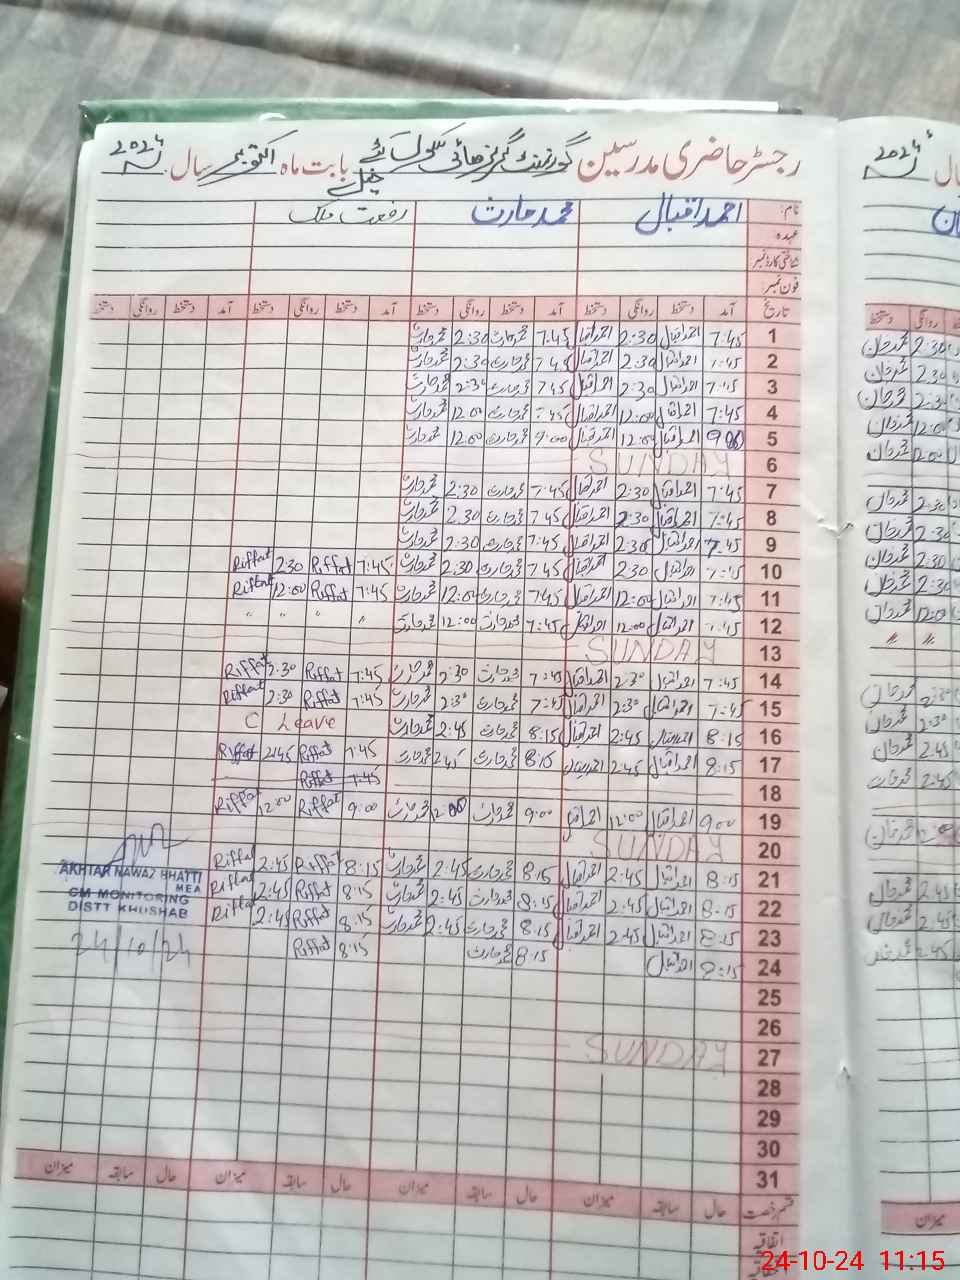 رجسٹر حاضری مدرسین گورنمنٹ گرلز ھائی سکول بابت ماہ اکتوبر سال 2024
نام: احمد اقبال محمد حارث رفعت ملک
عہدہ
شناختی کارڈ نمبر
فون نمبر:
تاریخ آمد دستخط روانگی دستخط آمد دستخط روانگی دستخط آمد دستخط روانگی دستخط آمد دستخط روانگی دستخط
1 7:45 احمد اقبال 2:30 احمد اقبال 7:45 محمد حارث 2:30 محمد حارث
2 7:45 احمد اقبال 2:30 احمد اقبال 7:45 محمد حارث 2:30 محمد حارث
3 7:45 احمد اقبال 2:30 احمد اقبال 7:45 محمد حارث 2:30 محمد حارث
4 7:45 احمد اقبال 12:00 احمد اقبال 7:45 محمد حارث 12:00 محمد حارث
5 9:00 احمد اقبال 12:00 احمد اقبال 9:00 محمد حارث 12:00 محمد حارث
6 SUNDAY
7 7:45 احمد اقبال 2:30 احمد اقبال 7:45 محمد حارث 2:30 محمد حارث
8 7:45 احمد اقبال 2:30 احمد اقبال 7:45 محمد حارث 2:30 محمد حارث
9 7:45 احمد اقبال 2:30 احمد اقبال 7:45 محمد حارث 2:30 محمد حارث
10 7:45 احمد اقبال 2:30 احمد اقبال 7:45 محمد حارث 2:30 محمد حارث 7:45 Riffat 2:30 Riffat
11 7:45 احمد اقبال 12:00 احمد اقبال 7:45 محمد حارث 12:00 محمد حارث 7:45 Riffat 12:00 Riffat
12 7:45 احمد اقبال 12:00 احمد اقبال 7:45 محمد حارث 12:00 محمد حارث " " " "
13 SUNDAY
14 7:45 احمد اقبال 2:30 احمد اقبال 7:45 محمد حارث 2:30 محمد حارث 7:45 Riffat 2:30 Riffat
15 7:45 احمد اقبال 2:30 احمد اقبال 7:45 محمد حارث 2:30 محمد حارث 7:45 Riffat 2:30 Riffat
16 8:15 احمد اقبال 2:45 احمد اقبال 8:15 محمد حارث 2:45 محمد حارث C Leave
17 8:15 احمد اقبال 2:45 احمد اقبال 8:15 محمد حارث 2:45 محمد حارث 7:45 Riffat 2:45 Riffat
18 7:45 Riffat
19 9:00 احمد اقبال 12:00 احمد اقبال 9:00 محمد حارث 12:00 محمد حارث 9:00 Riffat 12:00 Riffat
20 SUNDAY
21 8:15 احمد اقبال 2:45 احمد اقبال 8:15 محمد حارث 2:45 محمد حارث 8:15 Riffat 2:45 Riffat
22 8:15 احمد اقبال 2:45 احمد اقبال 8:15 محمد حارث 2:45 محمد حارث 8:15 Riffat 2:45 Riffat
23 8:15 احمد اقبال 2:45 احمد اقبال 8:15 محمد حارث 2:45 محمد حارث 8:15 Riffat 2:45 Riffat
24 8:15 احمد اقبال 8:15 محمد حارث 8:15 Riffat
25
26
27 SUNDAY
28
29
30
31
قسم رخصت حال سابقہ میزان حال سابقہ میزان حال سابقہ میزان حال سابقہ میزان
اتفاقیہ
AKHTAR NAWAZ BHATTI
MEA
CM MONITORING
DISTT KHUSHAB
24/10/24
2024
24-10-24 11:15